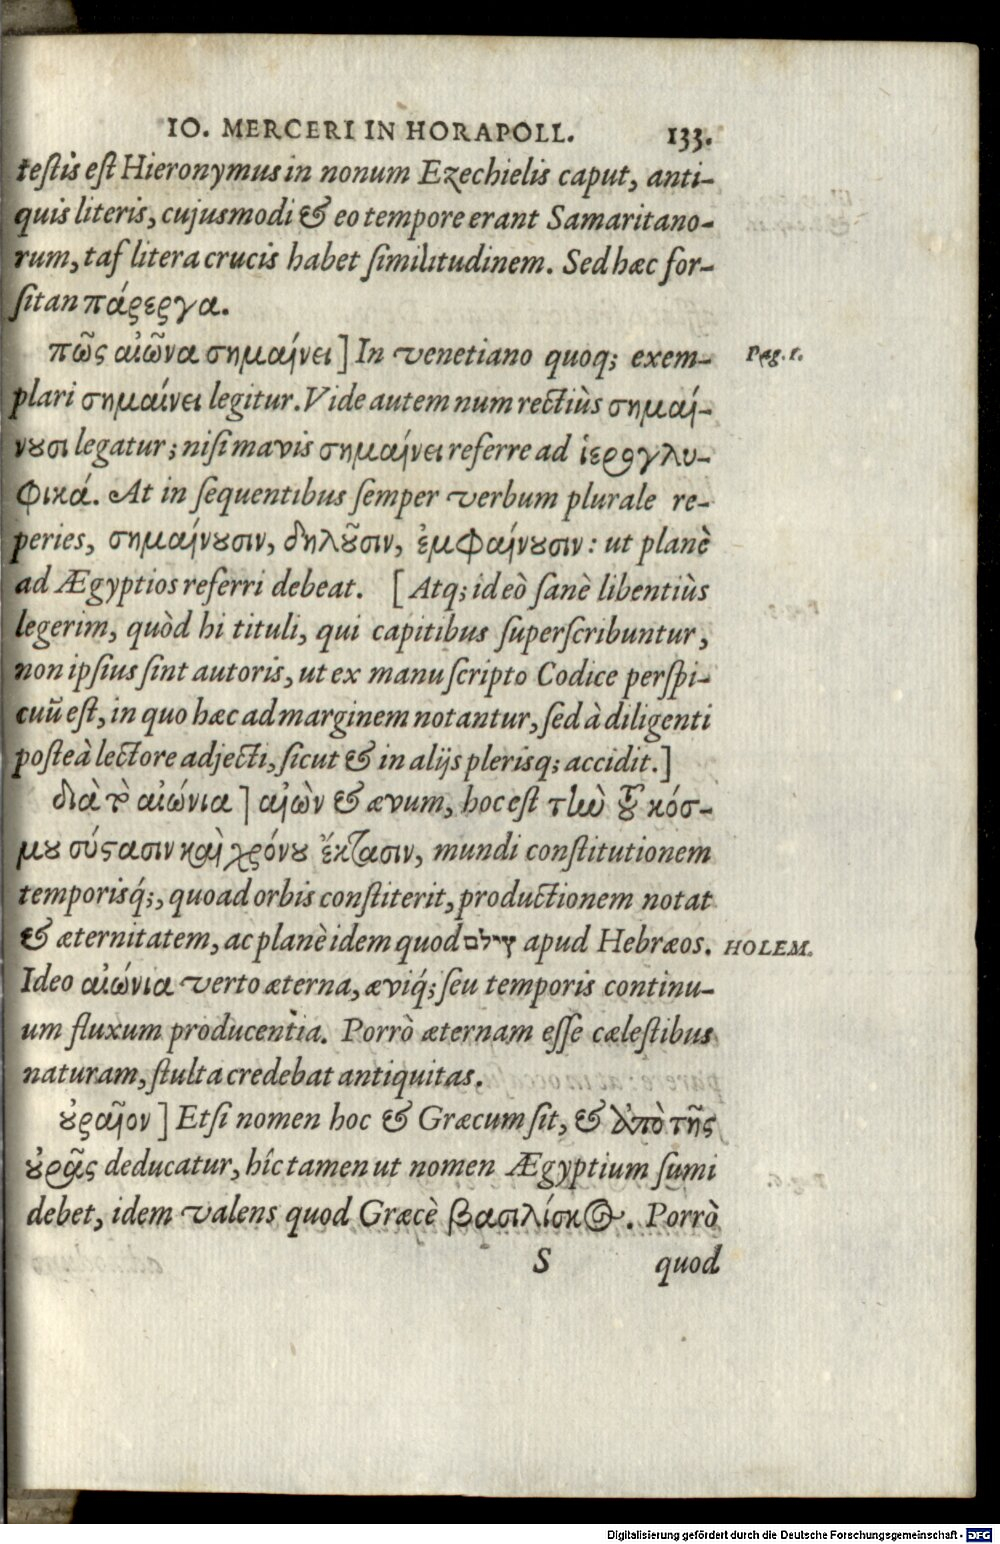 IO. MERCERI IN HORAPOLL. 133.
testis est Hieronymus in nonum Ezechielis caput, anti-
quis literis, cujusmodi & eo tempore erant Samaritano-
rum, taf litera crucis habet similitudinem. Sed hæc for-
sitan πάρεργα.
πῶς αἰῶνα σημαίνει] In venetiano quoq; exem- Pag. 1.
plari σημαίνει legitur. Vide autem num rectiùs σημαί-
νȣσι legatur; nisi mavis σημαίνει referre ad ἱερογλυ-
φικά. At in sequentibus semper verbum plurale re-
peries, σημαίνȣσιν, δηλȣ͂σιν, ἐμφαίνȣσιν: ut planè
ad Ægyptios referri debeat. [Atq; ideò sanè libentiùs
legerim, quòd hi tituli, qui capitibus superscribuntur,
non ipsius sint autoris, ut ex manuscripto Codice perspi-
cuũ est, in quo hæc ad marginem notantur, sed à diligenti
posteà lectore adjecti, sicut & in alijs plerisq; accidit.]
διὰ τὸ αἰώνια] αἰὼν & ævum, hoc est τὴν τȣ͂ κόσ-
μȣ σύστασιν καὶ χρόνȣ ἔκτασιν, mundi constitutionem
temporisq́;, quoad orbis constiterit, productionem notat
& æternitatem, ac planè idem quod apud Hebræos. HOLEM.
Ideo αἰώνια verto æterna, æviq́; seu temporis continu-
um fluxum producentia. Porrò æternam esse cælestibus
naturam, stulta credebat antiquitas.
ȣ̓ραῖον] Etsi nomen hoc & Græcum sit, & ἀπὸ τῆς
ȣ̓ρᾶς deducatur, hîc tamen ut nomen Ægyptium sumi
debet, idem valens quod Græcè βασιλίσκος. Porrò
S quod
Digitalisierung gefördert durch die Deutsche Forschungsgemeinschaft - DFG